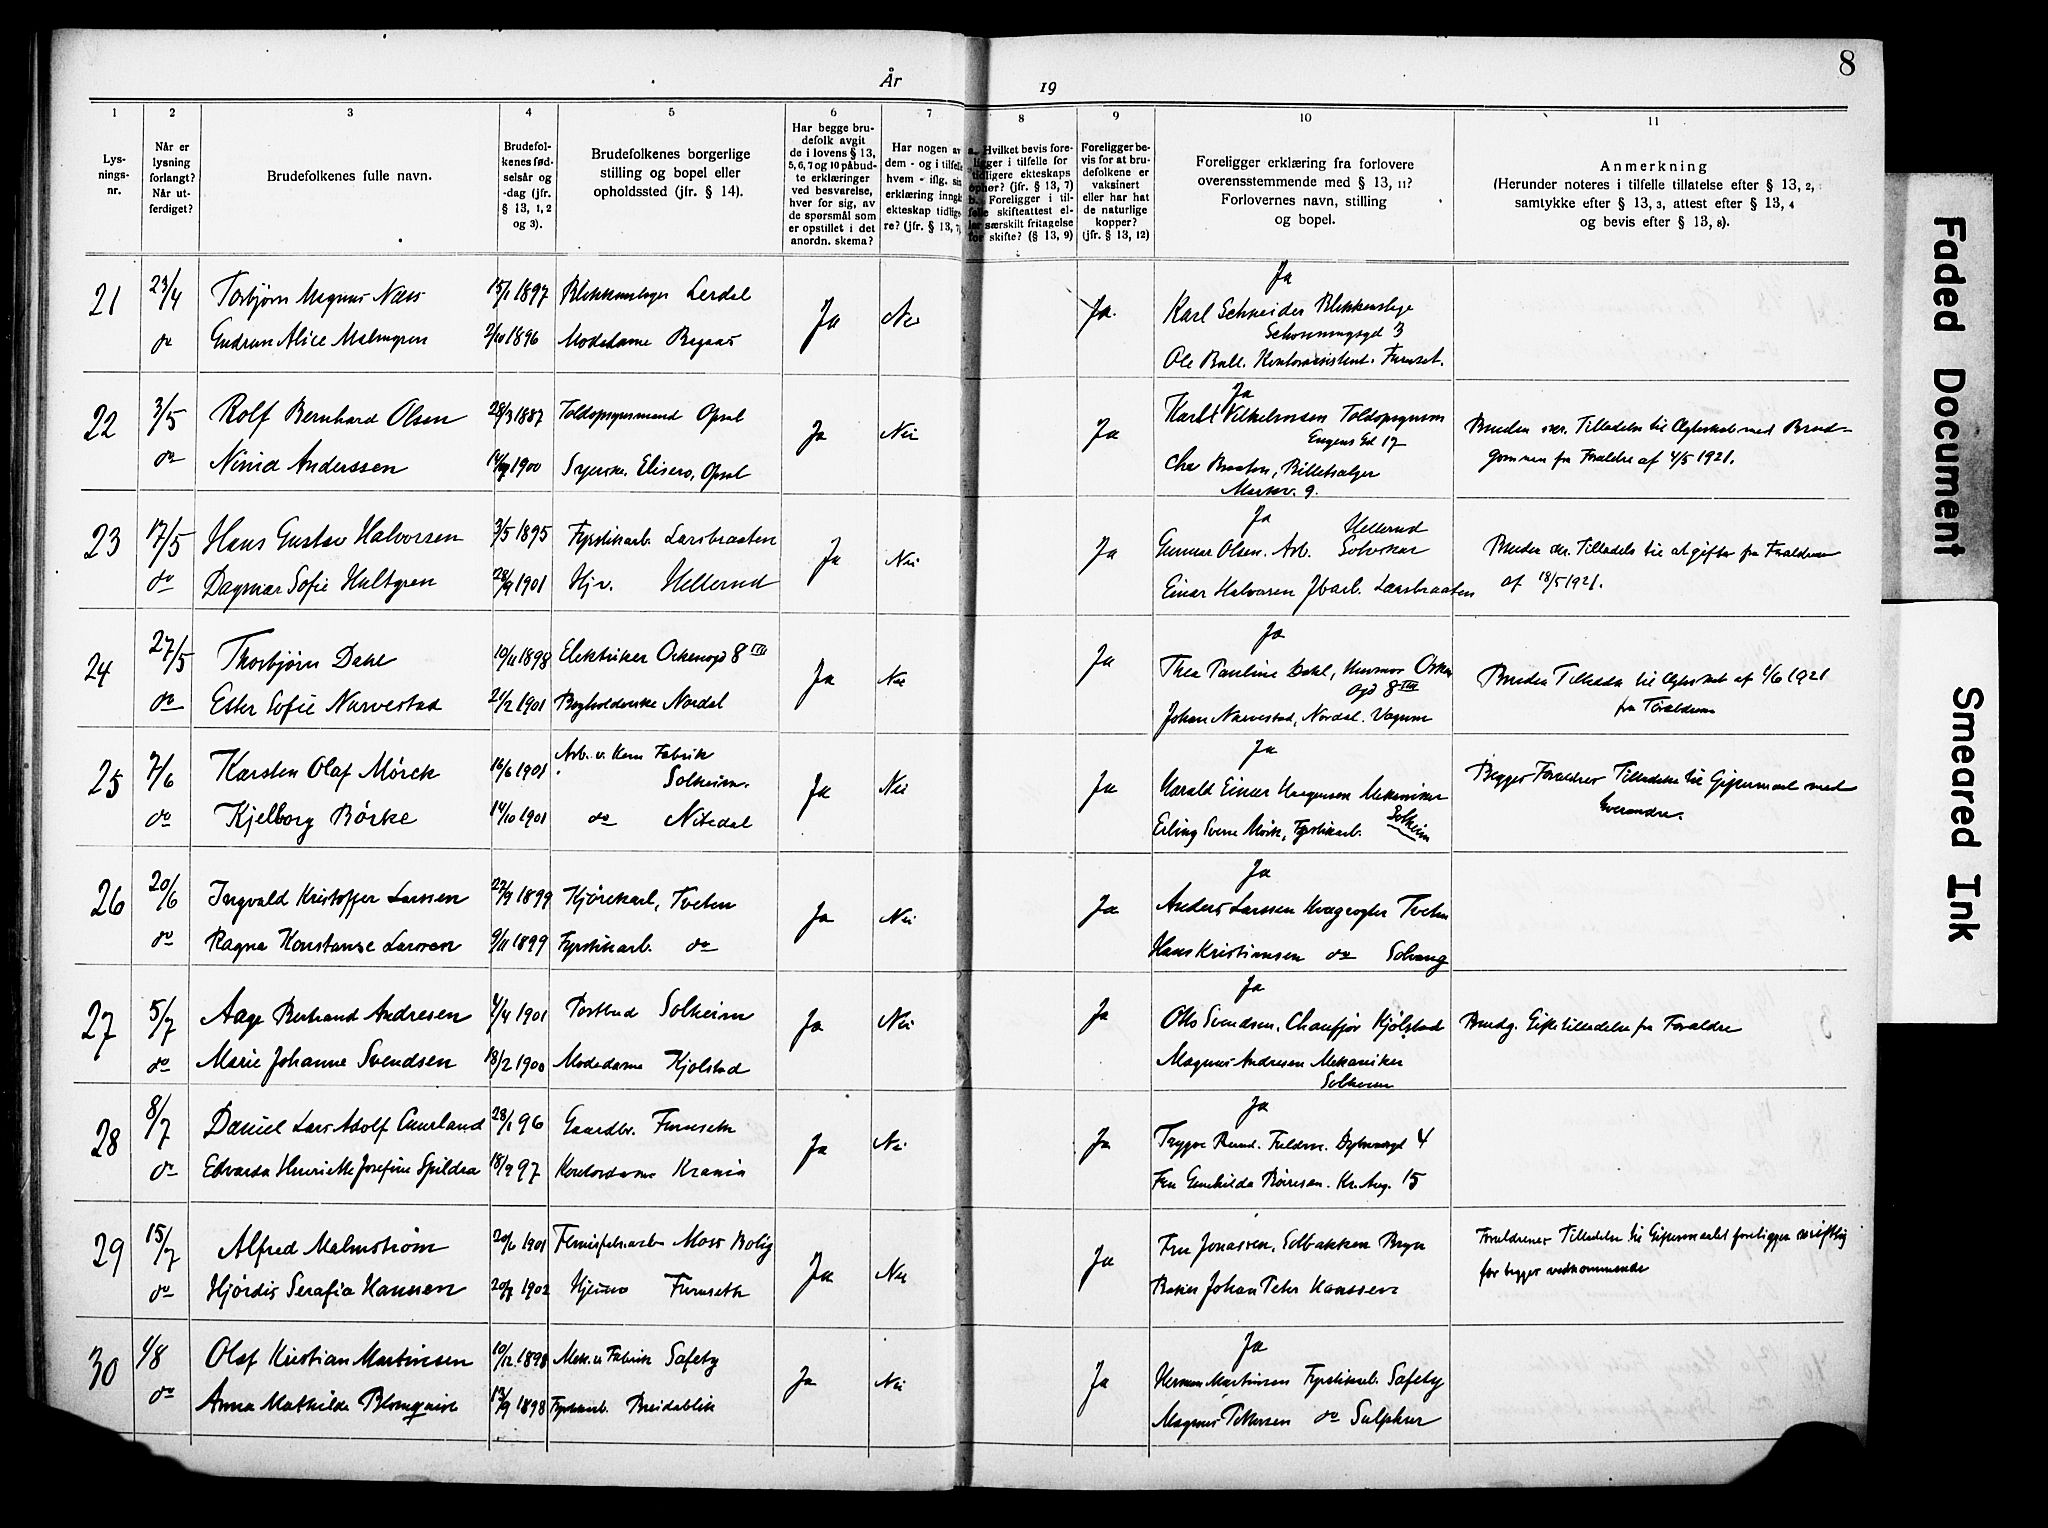 8
År 19
1 2 3 4 5 6 7 8 9 10 11
Lys-
nings-
nr.
Når er
lysning
forlangt?
Når ut-
ferdiget?
Brudefolkenes fulle navn.
Brudefol-
kenes fød-
selsår og
-dag (jfr.
§ 13, 1, 2
og 3).
Brudefolkenes borgerlige
stilling og bopel eller
opholdssted (jfr. § 14).
Har begge bru-
defolk avgit
de i lovens § 13,
5, 6, 7 og 10 påbud-
te erklæringer
ved besvarelse,
hver for sig, av
de spørsmål som
er opstillet i det
anordn. skema?
Har nogen av
dem - og i tilfelle
hvem - iflg. sin
erklæring inngåt
ekteskap tidlige-
re? (jfr. § 13, 7)
a. Hvilket bevis fore-
ligger i tilfelle for
tidligere ekteskaps
ophør? (jfr. § 13, 7)
b. Foreligger i til-
felle skifteattest el-
ler særskilt fritagelse
for skifte? (§ 13, 9)
Foreligger be-
vis for at bru-
defolkene er
vaksinert
eller har hat
de naturlige
kopper?
(jfr. § 13, 12)
Foreligger erklæring fra forlovere
overensstemmende med § 13, 11?
Forlovernes navn, stilling
og bopel.
Anmerkning
(Herunder noteres i tilfelle tillatelse efter § 13, 2,
samtykke efter § 13, 3, attest efter § 13, 4
og bevis efter § 13, 8).
Ja
21 23/4 Torbjørn Magnus Næss 15/1 1897 Blikkenslager Lerdal Ja Nei Ja. Karl Schneider Blikkenslage
Schouuingsgd 3
do Gudrun Alice Malmgren 1896 Modedame
Ole Kontorassistent. Furuset.
Ja
22 3/5 Rolf Bernhard Olsen 28/3 1887 Toldopsynsmand Opsal Ja Nei Ja Karl Vilhelmsen Toldopsynsm
Eugens Gd 17
Bruden skr. Tilladelse til Ægteskab med Brud-
gommen fra Forældre af 4/5 1921.
do Anderssen 1900 Syerske. Opsal
Braaten, Billetsælger
Markv. 9.
Ja
23 17/5 Hans Gustav Halvorsen 3/5 1895 Fyrstikarb. Larsbraaten Ja Nei Ja Gunnar Olsen. Arb. Hellerud
Bruden skr. Tilladels til at gifte fra Forældrene
af 18/5 1921.
do Dagmar Sofie Hultgren 28/9 1901 Hjv. Hellerud
Einar Halvorsen Larsbraaten
Ja
24 27/5 Thorbjørn Dahl 10/11 1898 Elektriker 8 III Ja Nei Ja Thea Pauline Dahl,
8 III
Bruden Tilladelse til Ægteskab af 1/6 1921
fra Forældrene
do Ester Sofie Narvestad 21/2 1901 Nordal
Johan Narvestad, Nordal.
Ja
25 7/6 Karsten Olaf Mörck 16/6 1901 Arb. v. Kem Fabrik
Solheim. Ja Nei Ja Harald Einar Mekaniker
Solheim
Begges Forældres Tilladelse til Giftermaal med
hverandre.
do Kjelborg Börke 14/10 1901 do Nitedal
Erling Sverre Mörk, Fyrstikarb.
Ja
26 20/6 Ingvald Kristoffer Larssen 27/9 1899 Kjörekarl, Tveten Ja Nei Ja Anders Larssen Kvægrøgter Tveten
do Ragna Konstanse Larssen 9/11 1899 Fyrstikarb. do
Hans Kristiansen do Solvang
Ja
27 5/7 Aage Bertrand Andresen 1/4 1901 Postbud Solheim Ja Nei Ja Otto Svendsen, Chauffør Kjölstad
Brudg. Giftetilladelse fra Forældre
do Marie Johanne Svendsen 18/2 1900 Modedame Kjölstad
Magnus Andresen Mekaniker
Solheim
Ja
28 8/7 Daniel Lars Adolf Aurland 28/1 96 Gaardbr. Furuseth Ja Nei Ja Trygve 4
do Edvarda Henriette Josefine Spildra 18/9 97 Kontordame Krania
Fru Gunhilda Kr. Aug. 15
29 15/7 Alfred Malmström 20/6 1901 Moss Bolig Ja Nei Ja Fru Jonassen, Solbakken Bryn
Forældrenes Tilladelse til Giftermaalet foreligger skriftlig
for begges vedkommende
do Hjördis Serafia Hansen 20/7 1902 Hjemme Furuseth
Johan Peter Hanssen
Ja
30 1/8 Olaf Kristian Martinsen 10/12 1898 Mek. v. Fabrik Safety Ja Nei Ja Herman Martinsen Fyrstikarb. Safety
do Anna Mathilde Blomqvist 13/9 1898 Fyrstikarb. Breidablik
Magnus Pettersen do Sulphur
Faded Document
Smeared Ink